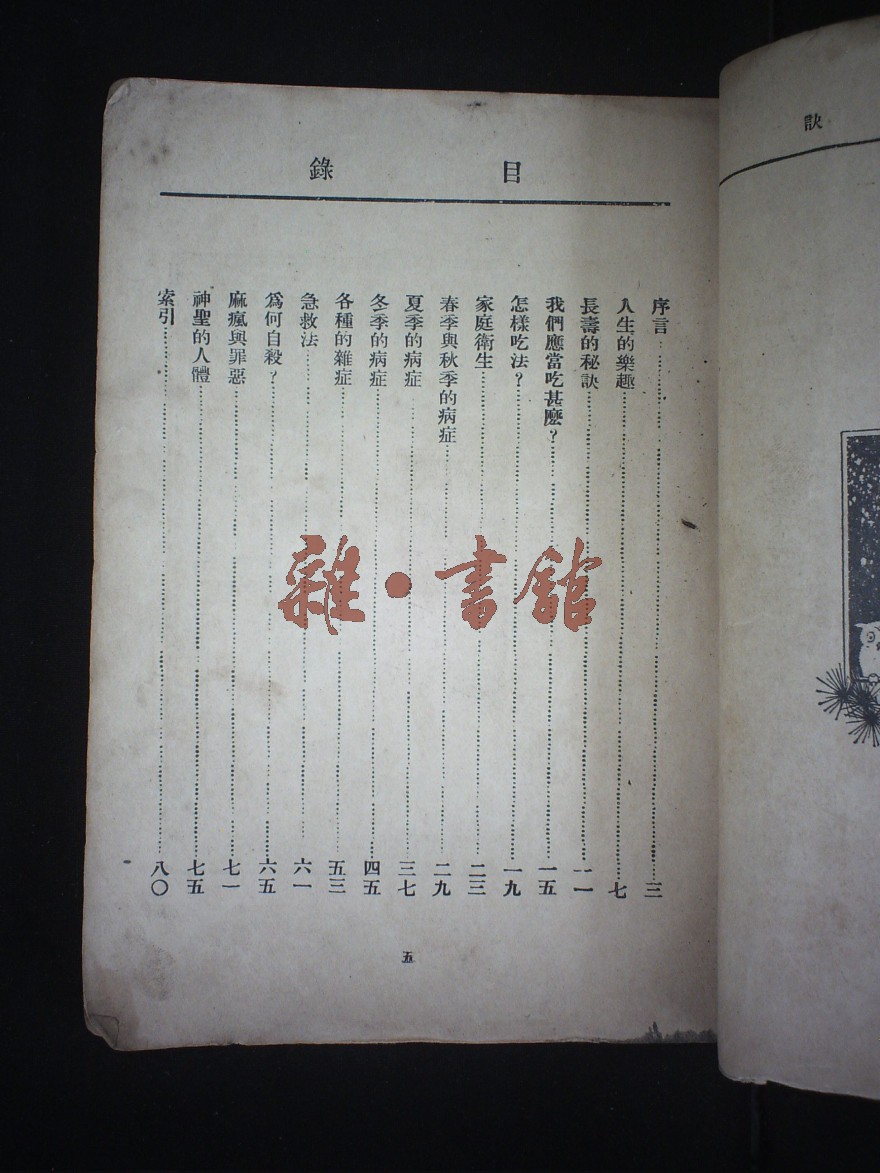 目錄
序言 三
人生的樂趣 七
長壽的秘訣 一一
我們應當吃甚麼？ 一五
怎樣吃法？ 一九
家庭衛生 二三
春季與秋季的病症 二九
夏季的病症 三七
冬季的病症 四五
各種的雜症 五三
急救法 六一
爲何自殺？ 六五
麻瘋與罪惡 七一
神聖的人體 七五
索引 八〇
五
訣
雜·書館